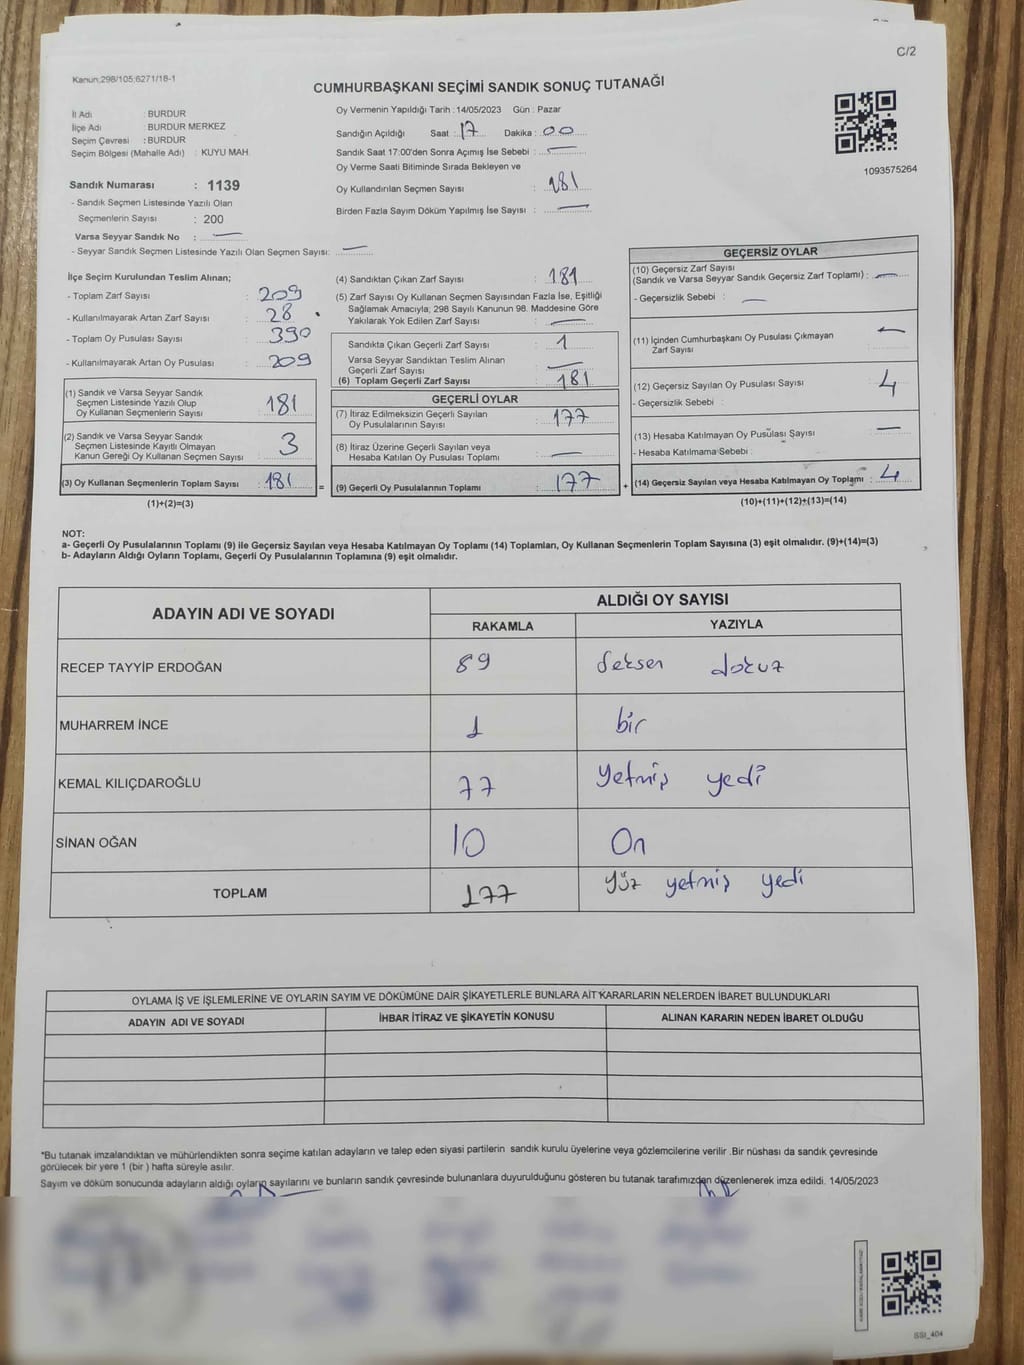 C/2
Kanun:298/105;6271/18-1
CUMHURBAŞKANI SEÇİMİ SANDIK SONUÇ TUTANAĞI
İl Adı : BURDUR
İlçe Adı : BURDUR MERKEZ
Seçim Çevresi : BURDUR
Seçim Bölgesi (Mahalle Adı) : KUYU MAH.
Sandık Numarası : 1139
- Sandık Seçmen Listesinde Yazılı Olan
Seçmenlerin Sayısı : 200
Varsa Seyyar Sandık No : —
- Seyyar Sandık Seçmen Listesinde Yazılı Olan Seçmen Sayısı: —
Oy Vermenin Yapıldığı Tarih : 14/05/2023 Gün : Pazar
Sandığın Açıldığı Saat : 17 Dakika : 00
Sandık Saat 17:00'den Sonra Açımış İse Sebebi : —
Oy Verme Saati Bitiminde Sırada Bekleyen ve
Oy Kullandırılan Seçmen Sayısı : 181
Birden Fazla Sayım Döküm Yapılmış İse Sayısı : —
1093575264
İlçe Seçim Kurulundan Teslim Alınan;
- Toplam Zarf Sayısı : 209
- Kullanılmayarak Artan Zarf Sayısı : 28
- Toplam Oy Pusulası Sayısı : 390
- Kullanılmayarak Artan Oy Pusulası : 209
(1) Sandık ve Varsa Seyyar Sandık
Seçmen Listesinde Yazılı Olup
Oy Kullanan Seçmenlerin Sayısı : 181
(2) Sandık ve Varsa Seyyar Sandık
Seçmen Listesinde Kayıtlı Olmayan
Kanun Gereği Oy Kullanan Seçmen Sayısı : 3
(3) Oy Kullanan Seçmenlerin Toplam Sayısı : 181 =
(1)+(2)=(3)
(4) Sandıktan Çıkan Zarf Sayısı : 181
(5) Zarf Sayısı Oy Kullanan Seçmen Sayısından Fazla İse, Eşitliği
Sağlamak Amacıyla; 298 Sayılı Kanunun 98. Maddesine Göre
Yakılarak Yok Edilen Zarf Sayısı : —
Sandıkta Çıkan Geçerli Zarf Sayısı : 1
Varsa Seyyar Sandıktan Teslim Alınan
Geçerli Zarf Sayısı : —
(6) Toplam Geçerli Zarf Sayısı : 181
GEÇERLİ OYLAR
(7) İtiraz Edilmeksizin Geçerli Sayılan
Oy Pusulalarının Sayısı : 177
(8) İtiraz Üzerine Geçerli Sayılan veya
Hesaba Katılan Oy Pusulası Toplamı : —
(9) Geçerli Oy Pusulalarının Toplamı : 177 +
GEÇERSİZ OYLAR
(10) Geçersiz Zarf Sayısı
(Sandık ve Varsa Seyyar Sandık Geçersiz Zarf Toplamı) : —
- Geçersizlik Sebebi : —
(11) İçinden Cumhurbaşkanı Oy Pusulası Çıkmayan
Zarf Sayısı : —
(12) Geçersiz Sayılan Oy Pusulası Sayısı : 4
- Geçersizlik Sebebi :
(13) Hesaba Katılmayan Oy Pusulası Sayısı : —
- Hesaba Katılmama Sebebi :
(14) Geçersiz Sayılan veya Hesaba Katılmayan Oy Toplamı : 4
(10)+(11)+(12)+(13)=(14)
NOT:
a- Geçerli Oy Pusulalarının Toplamı (9) ile Geçersiz Sayılan veya Hesaba Katılmayan Oy Toplamı (14) Toplamları, Oy Kullanan Seçmenlerin Toplam Sayısına (3) eşit olmalıdır. (9)+(14)=(3)
b- Adayların Aldığı Oyların Toplamı, Geçerli Oy Pusulalarının Toplamına (9) eşit olmalıdır.
ADAYIN ADI VE SOYADI ALDIĞI OY SAYISI
RAKAMLA YAZIYLA
RECEP TAYYİP ERDOĞAN 89 Seksen dokuz
MUHARREM İNCE 1 bir
KEMAL KILIÇDAROĞLU 77 Yetmiş yedi
SİNAN OĞAN 10 On
TOPLAM 177 Yüz yetmiş yedi
OYLAMA İŞ VE İŞLEMLERİNE VE OYLARIN SAYIM VE DÖKÜMÜNE DAİR ŞİKAYETLERLE BUNLARA AİT KARARLARIN NELERDEN İBARET BULUNDUKLARI
ADAYIN ADI VE SOYADI İHBAR İTİRAZ VE ŞİKAYETİN KONUSU ALINAN KARARIN NEDEN İBARET OLDUĞU
*Bu tutanak imzalandıktan ve mühürlendikten sonra seçime katılan adayların ve talep eden siyasi partilerin sandık kurulu üyelerine veya gözlemcilerine verilir .Bir nüshası da sandık çevresinde
görülecek bir yere 1 (bir ) hafta süreyle asılır.
Sayım ve döküm sonucunda adayların aldığı oyların sayılarını ve bunların sandık çevresinde bulunanlara duyurulduğunu gösteren bu tutanak tarafımızdan düzenlenerek imza edildi. 14/05/2023
SSI_404